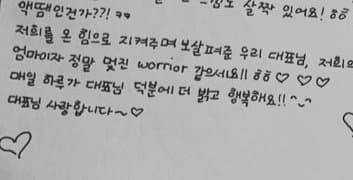 살짝 있어요! ㅎㅎ
액땜인건가??! ㅋㅋ
저희를 온 힘으로 지켜주며 보살펴준 우리 대표님, 저희의
엄마이자 정말 멋진 worrior 같으세요!! ㅎㅎ ♡ ♡ ♡
매일 하루가 대표님 덕분에 더 밝고 행복해요!! ^_^
대표님 사랑합니다~ ♡